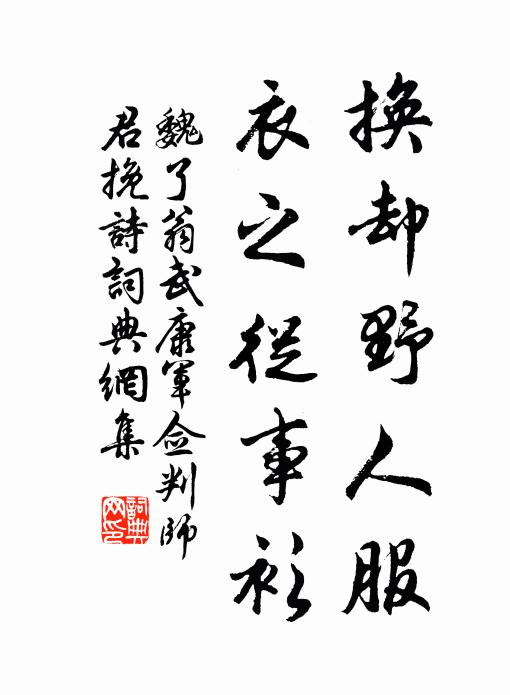 换却野人服
衣之從事衫
魏了翁武康軍佥判師
君挽詩詞典網集
詞典
网印